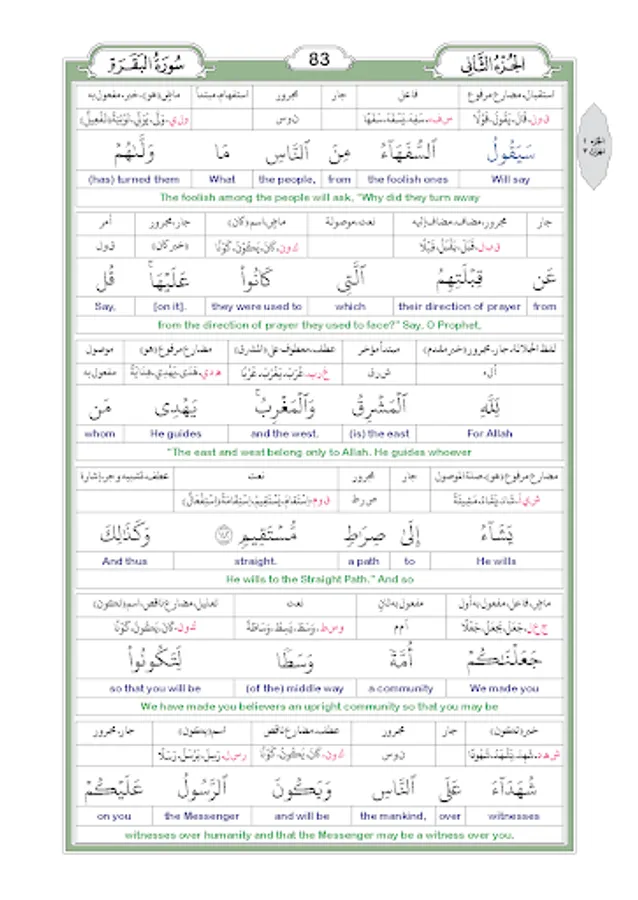 الجزء الثاني 83 سورة البقرة
الجزء ١
استقبال، مضارع مرفوع فاعل جار مجرور استفهام، مبتدأ ماضٍ (هو)، خبر، مفعول به
ق و ل، قَالَ، يَقُولُ، قَوْلًا س ف ه، سَفِهَ، يَسْفَهُ، سَفَهًا ن و س و ل ي، وَلَّى، يُوَلِّي، تَوْلِيَةً (تَفْعِيلٌ)
سَيَقُولُ ٱلسُّفَهَآءُ مِنَ ٱلنَّاسِ مَا وَلَّىٰهُمْ
Will say the foolish ones from the people, What (has) turned them
The foolish among the people will ask, "Why did they turn away
جار مجرور، مضاف، مضاف إليه نعت، موصولة ماضٍ، اسم (كان) جار، مجرور أمر
ق ب ل، قَبِلَ، يَقْبَلُ، قَبْلًا ك و ن، كَانَ، يَكُونُ، كَوْنًا (خبر كان) ق و ل
عَن قِبْلَتِهِمُ ٱلَّتِى كَانُوا۟ عَلَيْهَا ۚ قُل
from their direction of prayer which they were used to [on it]. Say,
from the direction of prayer they used to face?" Say, O Prophet,
لفظ الجلالة، جار، مجرور (خبر مقدم) مبتدأ مؤخر عطف، معطوف على (المشرق) مضارع مرفوع (هو) موصول
أ ل ه ش ر ق غ ر ب، غَرَبَ، يَغْرُبُ، غَرْبًا ه د ي، هَدَى، يَهْدِي، هِدَايَةً مفعول به
لِّلَّهِ ٱلْمَشْرِقُ وَٱلْمَغْرِبُ ۚ يَهْدِى مَن
For Allah (is) the east and the west. He guides whom
"The east and west belong only to Allah. He guides whoever
مضارع مرفوع (هو)، صلة الموصول جار مجرور نعت عطف، تشبيه وجر، إشارة
ش ي أ، شَاءَ، يَشَاءُ، مَشِيئَةً ص ر ط ق و م، اِسْتَقَامَ، يَسْتَقِيمُ، اِسْتِقَامَةً (اِسْتِفْعَالٌ)
يَشَآءُ إِلَىٰ صِرَٰطٍ مُّسْتَقِيمٍ ١٤٢ وَكَذَٰلِكَ
He wills to a path straight. And thus
He wills to the Straight Path." And so
ماضٍ، فاعل، مفعول به أول مفعول به ثانٍ نعت تعليل، مضارع ناقص، اسم (تكون)
ج ع ل، جَعَلَ، يَجْعَلُ، جَعْلًا أ م م و س ط، وَسَطَ، يَسِطُ، وَسَاطَةً ك و ن، كَانَ، يَكُونُ، كَوْنًا
جَعَلْنَٰكُمْ أُمَّةً وَسَطًا لِّتَكُونُوا۟
We made you a community (of the) middle way so that you will be
We have made you believers an upright community so that you may be
خبر (تكون) جار مجرور عطف، مضارع ناقص اسم (يكون) جار، مجرور
ش ه د، شَهِدَ، يَشْهَدُ، شُهُودًا ن و س ك و ن، كَانَ، يَكُونُ، كَوْنًا ر س ل، رَسِلَ، يَرْسَلُ، رَسَلًا
شُهَدَآءَ عَلَى ٱلنَّاسِ وَيَكُونَ ٱلرَّسُولُ عَلَيْكُمْ
witnesses over the mankind, and will be the Messenger on you
witnesses over humanity and that the Messenger may be a witness over you.